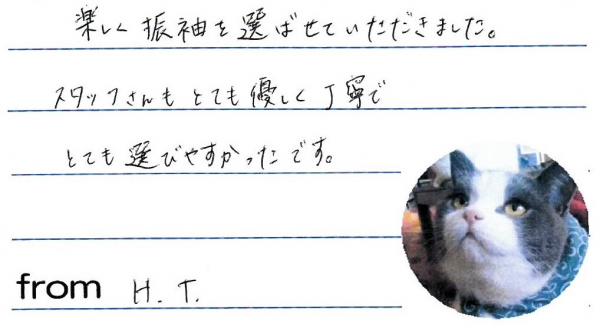 楽しく振袖を選ばせていただきました。
スタッフさんもとても優しく丁寧で
とても選びやすかったです。
from H.T.